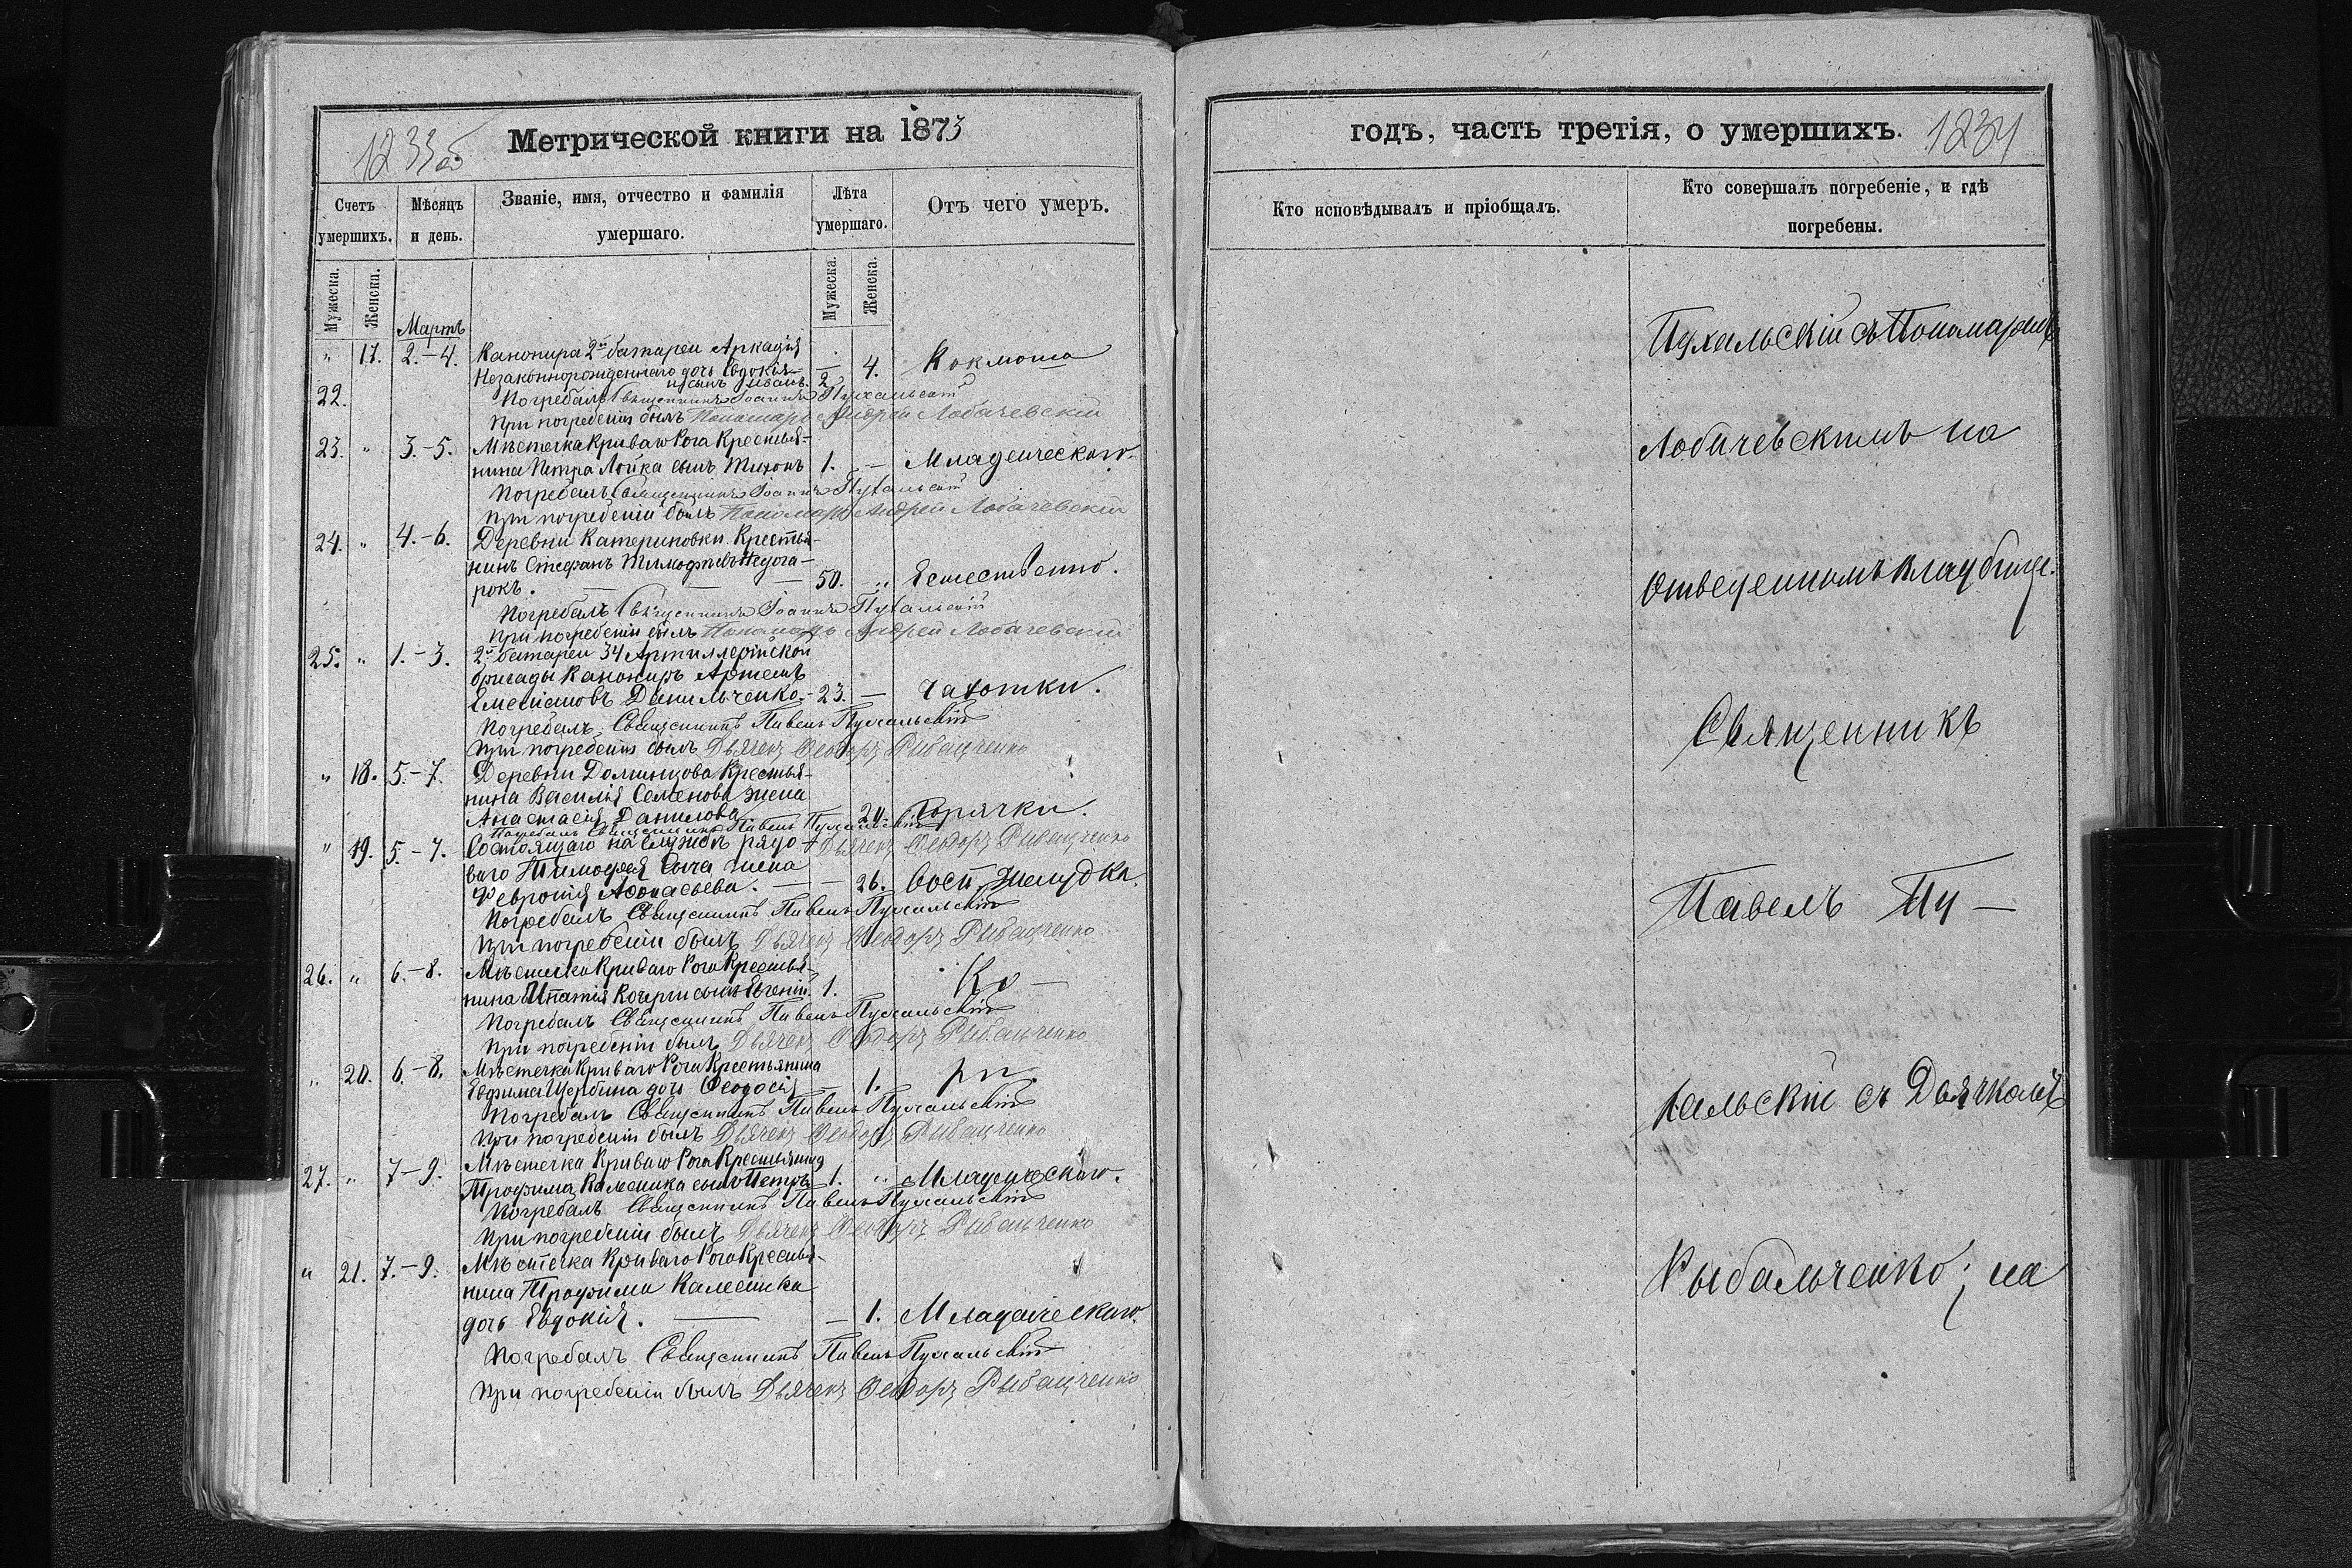 1233об
Метрической книги на 1873
Счетъ умершихъ.
Мѣсяцъ и день.
Званіе, имя, отчество и фамилія умершаго.
Лѣта умершаго.
Отъ чего умеръ.
Мужеска.
Женска.
Мужеска.
Женска.
Мартъ
" 17. 2.-4. Канонира 2й батареи Аркадія
Незаконнорожденнаго дочь Евдокія — 4. Коклюша
22. и сынъ Иванъ. 2.
Погребалъ Священникъ Іоаннъ Пухальскій
При погребеніи былъ Пономарь Андрей Лобачевскій
23. " 3.-5. Мѣстечка Криваго Рога Крестья-
нина Петра Лойка сынъ Тихонъ 1. — Младенческаго.
Погребалъ Священникъ Іоаннъ Пухальскій
При погребеніи былъ Пономарь Андрей Лобачевскій
24. " 4.-6. Деревни Катериновки Крестья-
нинъ Стефанъ Тимофѣевъ Недога-
рокъ. — — 50. " Естественно.
Погребалъ Священникъ Іоаннъ Пухальскій
При погребеніи былъ Пономарь Андрей Лобачевскій
25. " 1.-3. 2й батареи 34 Артиллерійской
бригады Канониръ Артемъ
Емеліановъ Данильченко.- 23. — Чахотки.
Погребалъ Священникъ Павелъ Пухальскій
При погребеніи былъ Дьячекъ Ѳеодоръ Рыбальченко
" 18. 5.-7. Деревни Долинцова Крестья-
нина Василія Семенова жена
Анастасія Данилова 20. Горячки.
Погребалъ Священникъ Павелъ Пухальскій
" 19. 5.-7. Состоящаго на службѣ рядо- Дьячекъ Ѳеодоръ Рыбальченко
ваго Тимофея Сыча жена
Февронія Аѳонасьева. — — 26. Восп. Желудка.
Погребалъ Священникъ Павелъ Пухальскій
При погребеніи былъ Дьячекъ Ѳеодоръ Рыбальченко
26. " 6.-8. Мѣстечка Криваго Рога Крестья-
нина Ипатія Кочерги сынъ Евгеній. 1. Ко —
Погребалъ Священникъ Павелъ Пухальскій
При погребеніи былъ Дьячекъ Ѳеодоръ Рыбальченко
" 20. 6.-8. Мѣстечка Криваго Рога Крестьянина
Евфима Щербина дочь Ѳеодосія — 1. ри.
Погребалъ Священникъ Павелъ Пухальскій
При погребеніи былъ Дьячекъ Ѳеодоръ Рыбальченко
27. " 7-9. Мѣстечка Криваго Рога Крестьянина
Трофима Калесника сынъ Петръ 1. " Младенческаго.
Погребалъ Священникъ Павелъ Пухальскій
При погребеніи былъ Дьячекъ Ѳеодоръ Рыбальченко
" 21. 7.-9. Мѣстечка Криваго Рога Крестья-
нина Трофима Калесника
дочь Евдокія. — — 1. Младенческаго.
Погребалъ Священникъ Павелъ Пухальскій
При погребеніи былъ Дьячекъ Ѳеодоръ Рыбальченко
годъ, часть третія, о умершихъ.
1234
Кто исповѣдывалъ и пріобщалъ.
Кто совершалъ погребеніе, и гдѣ погребены.
Пухальскій съ Пономаремъ
Лобачевскимъ на
отведенномъ кладбище.
Священникъ
Павелъ Пу —
хальскій съ Дьячкомъ
Рыбальченко; на